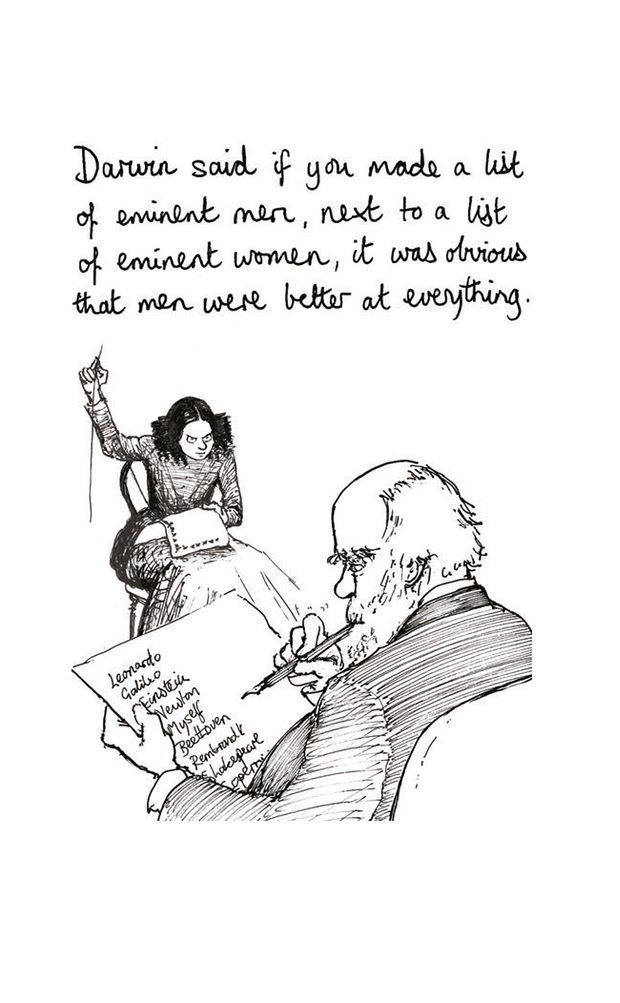 Darwin said if you made a list
of eminent men, next to a list
of eminent women, it was obvious
that men were better at everything.
Leonardo
Galileo
Einstein
Newton
Myself
Beethoven
Rembrandt
Shakespeare